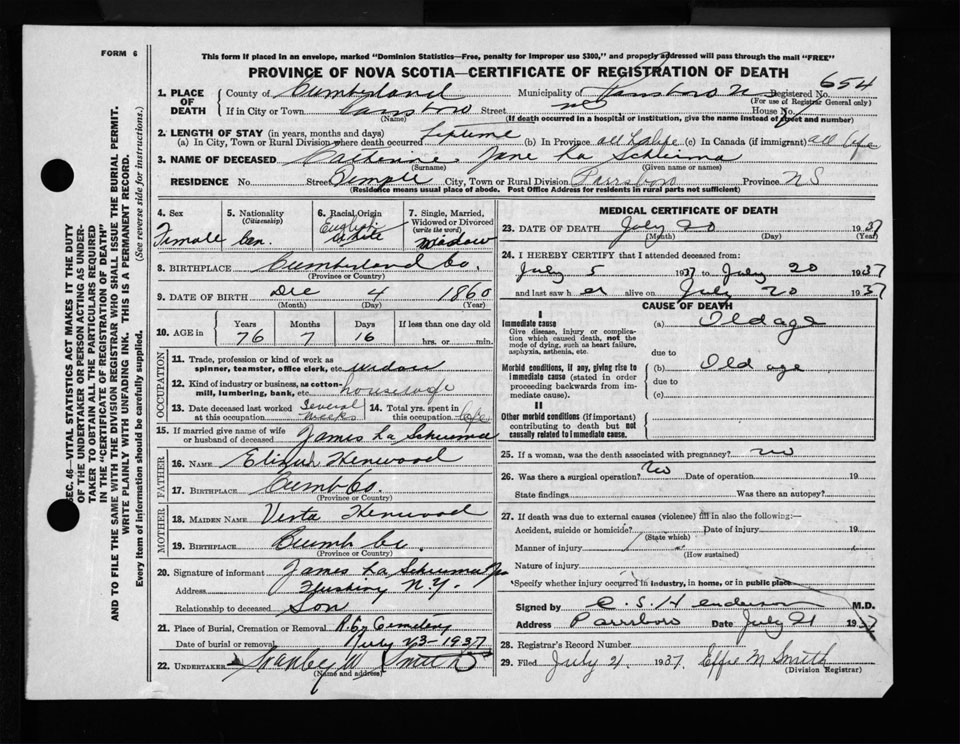 FORM 6
This form if placed in an envelope, marked "Dominion Statistics—Free, penalty for improper use $300," and properly addressed will pass through the mail "FREE"
PROVINCE OF NOVA SCOTIA—CERTIFICATE OF REGISTRATION OF DEATH
1. PLACE OF DEATH
County of Cumberland Municipality of Parrsboro Registered No. 654
(For use of Registrar General only)
If in City or Town Street House No.
(Name) (If death occurred in a hospital or institution, give the name instead of street and number)
2. LENGTH OF STAY (in years, months and days)
(a) In City, Town or Rural Division where death occurred Lifetime (b) In Province all life (c) In Canada (if immigrant) all life
3. NAME OF DECEASED Catherine Jane La
(Surname) (Given name or names)
RESIDENCE No. Street City, Town or Rural Division Parrsboro Province NS
(Residence means usual place of abode. Post Office Address for residents in rural parts not sufficient)
4. Sex Female
5. Nationality (Citizenship) Can.
6. Racial Origin English White
7. Single, Married, Widowed or Divorced (write the word) Widow
8. BIRTHPLACE Cumberland Co.
(Province or Country)
9. DATE OF BIRTH Dec 4 1860
(Month) (Day) (Year)
10. AGE in Years 76 Months 7 Days 16 If less than one day old hrs. or min.
OCCUPATION
11. Trade, profession or kind of work as spinner, teamster, office clerk, etc. Widow
12. Kind of industry or business, as cotton-mill, lumbering, bank, etc. housewife
13. Date deceased last worked at this occupation Several weeks
14. Total yrs. spent in this occupation life
15. If married give name of wife or husband of deceased James La
FATHER
16. NAME Henwood
17. BIRTHPLACE Cumb Co.
(Province or Country)
MOTHER
18. MAIDEN NAME Henwood
19. BIRTHPLACE Cumb Co.
(Province or Country)
20. Signature of informant James La
Address Flushing N.Y.
Relationship to deceased Son
21. Place of Burial, Cremation or Removal Cemetery
Date of burial or removal July 23-1937
22. UNDERTAKER Stanley W Smith
(Name and address)
MEDICAL CERTIFICATE OF DEATH
23. DATE OF DEATH July 20 1937
(Month) (Day) (Year)
24. I HEREBY CERTIFY that I attended deceased from:
July 5 1937 to July 20 1937
and last saw her alive on July 20 1937
CAUSE OF DEATH
I
Immediate cause
Give disease, injury or complication which caused death, not the mode of dying, such as heart failure, asphyxia, asthenia, etc.
(a) Old age
due to
Morbid conditions, if any, giving rise to immediate cause (stated in order proceeding backwards from immediate cause).
(b) Old age
due to
(c)
II
Other morbid conditions (if important) contributing to death but not causally related to immediate cause.
25. If a woman, was the death associated with pregnancy? no
26. Was there a surgical operation? no Date of operation 19
State findings Was there an autopsy?
27. If death was due to external causes (violence) fill in also the following:—
Accident, suicide or homicide? Date of injury 19
(State which)
Manner of injury
(How sustained)
Nature of injury
Specify whether injury occurred in industry, in home, or in public place
Signed by C. S. Henderson M.D.
Address Parrsboro Date July 21 1937
28. Registrar's Record Number
29. Filed July 21 1937. Effie M Smith
(Division Registrar)
SEC. 46—VITAL STATISTICS ACT MAKES IT THE DUTY
OF THE UNDERTAKER OR PERSON ACTING AS UNDERTAKER TO OBTAIN ALL THE PARTICULARS REQUIRED
IN THE "CERTIFICATE OF REGISTRATION OF DEATH"
AND TO FILE THE SAME WITH THE DIVISION REGISTRAR WHO SHALL ISSUE THE BURIAL PERMIT.
WRITE PLAINLY WITH UNFADING INK. THIS IS A PERMANENT RECORD.
Every item of information should be carefully supplied. (See reverse side for instructions.)